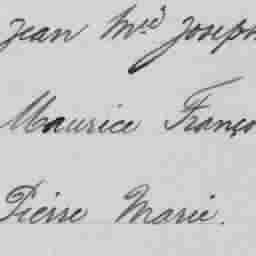 Jean Mie Joseph
Maurice Franço
Pierre Marie.